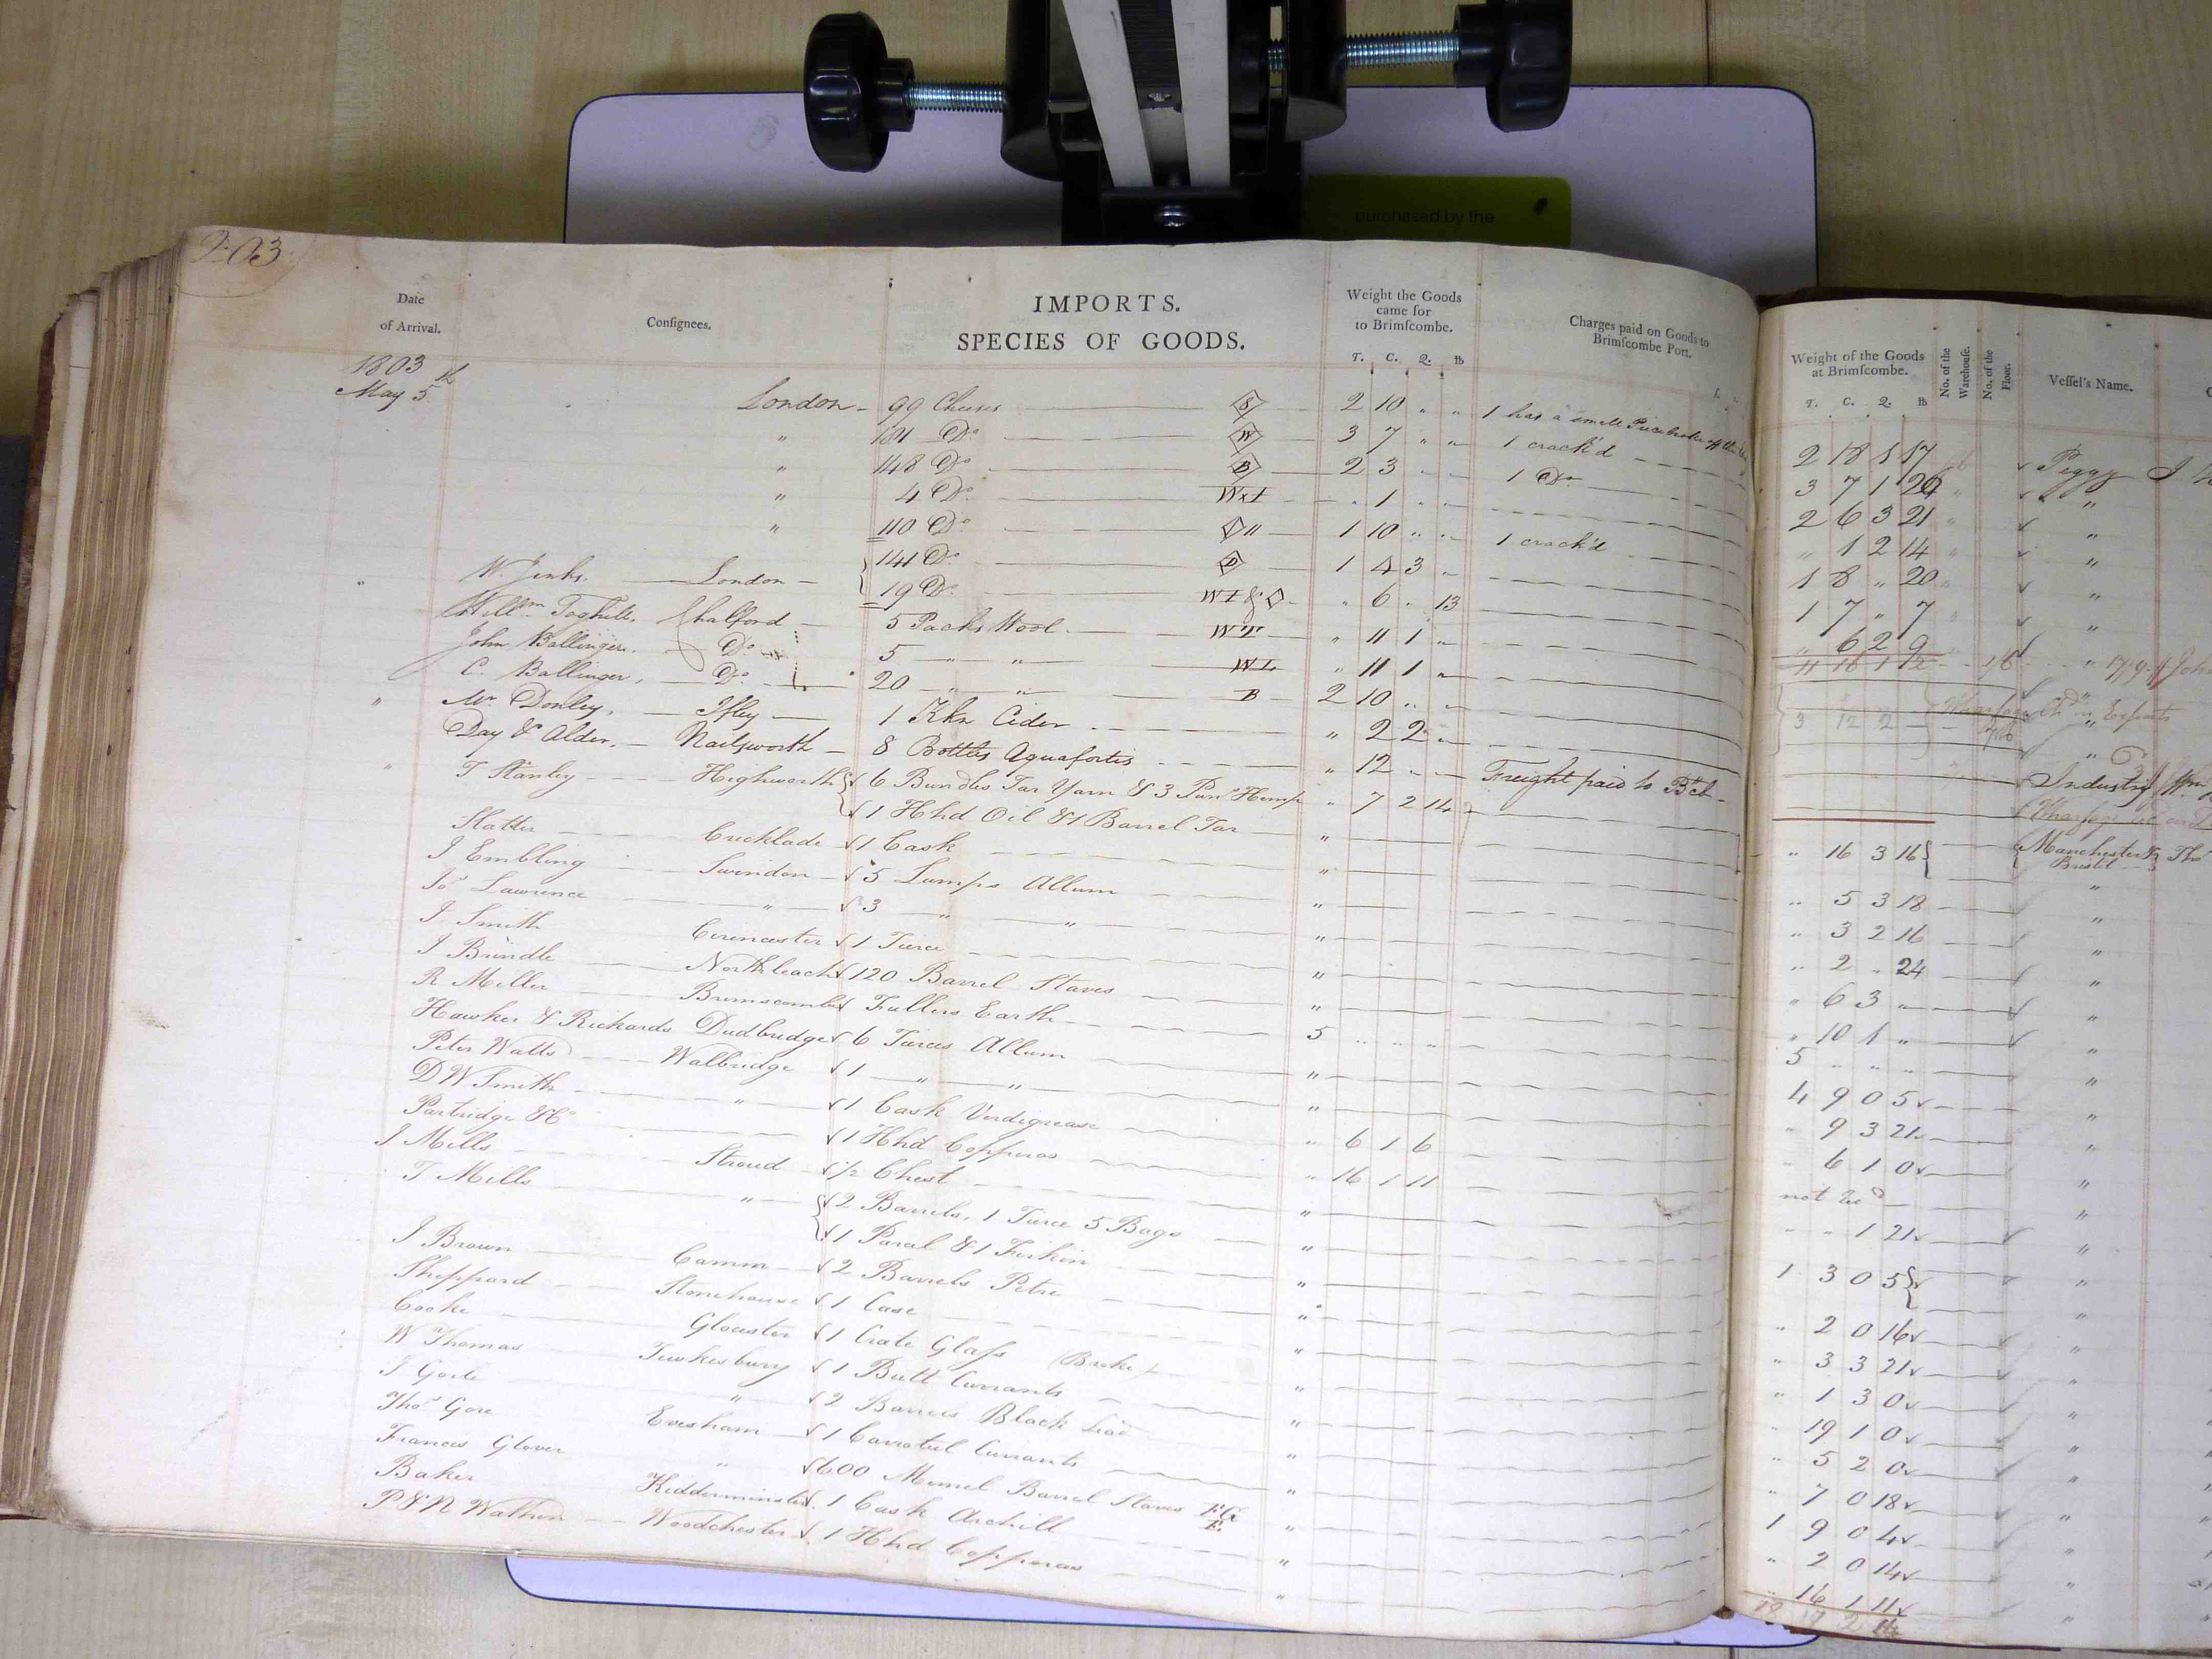 purchased by the
203
Date of Arrival. Consignees. IMPORTS. SPECIES OF GOODS. Weight the Goods came for to Brimscombe. Charges paid on Goods to Brimscombe Port. Weight of the Goods at Brimscombe. No. of the Warehouse. No. of the Floor. Vessel's Name.
T. C. Q. lb T. C. Q. lb
1803
May 5th
London - 99 Cheeses S 2 10 " " 1 has a small Piece broke off 2 18 1 17 Peggy
" 181 Do W 3 7 " " 1 crack'd 3 7 1 26 "
" 148 Do B 2 3 " " 1 Do 2 6 3 21 "
" 4 Do W×I " 1 " " " 1 2 14 "
" 110 Do 1 10 " " 1 crack'd 1 8 " 20 "
W. Jenks. London - 141 Do D 1 4 3 " 1 7 " 7 "
19 Do WI & " 6 " 13 " 6 2 9 "
Willm Toghill, Chalford 5 Packs Wool WT " 11 1 "
John Ballinger, Do 5 " " WL " 11 1 "
C. Ballinger, Do 20 " " B 2 10 " " 3 12 2 Exports
Mr Donley, Ifley 1 Kkn Cider " 2 2 "
Day & Alder, Nailsworth 8 Bottles Aquafortis " 12 " " Freight paid to Industry
T Stanley Highworth 6 Bundles Tar Yarn & 3 Hemp " 7 2 14
1 Hhd Oil & 1 Barrel Tar " " 16 3 16 Manchester & Bristol Tho
Slatter Cricklade 1 Cask " " 5 3 18 "
J Embling Swindon 5 Lumps Allum " " 3 2 16 "
Jos Lawrence " 3 " " " " 2 " 24 "
J Smith Cirencester 1 Tierce " " 6 3 " "
J Brindle Northleach 120 Barrel Staves " " 10 1 " "
R Miller Brimscombe Fullers Earth 5 " " " 5 " " " "
Hawker & Richards Dudbridge 6 Tierces Allum " 4 9 0 5 "
Peter Watts Walbridge 1 " " " " 9 3 21 "
D W Smith " 1 Cask Verdigrease " 6 1 6 " 6 1 0 "
Partridge & Co 1 Hhd Copperas " 16 1 11 not "
J Mills Stroud 1/2 Chest " " " 1 21 "
T Mills " 2 Barrels, 1 Tierce 5 Bags " 1 3 0 5 "
1 Parcel & 1 Firkin "
J Brown Camm 2 Barrels Petre " " 2 0 16 "
Sheppard Stonehouse 1 Case " " 3 3 21 "
Cooke Glocester 1 Crate Glass (Broke) " " 1 3 0 "
W Thomas Tewkesbury 1 Butt Currants " " 19 1 0 "
J Gorle " 2 Barrels Black Lead " " 5 2 0 "
Thos Gore Evesham 1 Carrotel Currants " " 7 0 18 "
Frances Glover " 600 Memel Barrel Staves FG " 1 9 0 4 "
Baker Kidderminster 1 Cask Archill " " 2 0 14 "
P & N Wathen Woodchester 1 Hhd Copperas " " 16 1 11 "